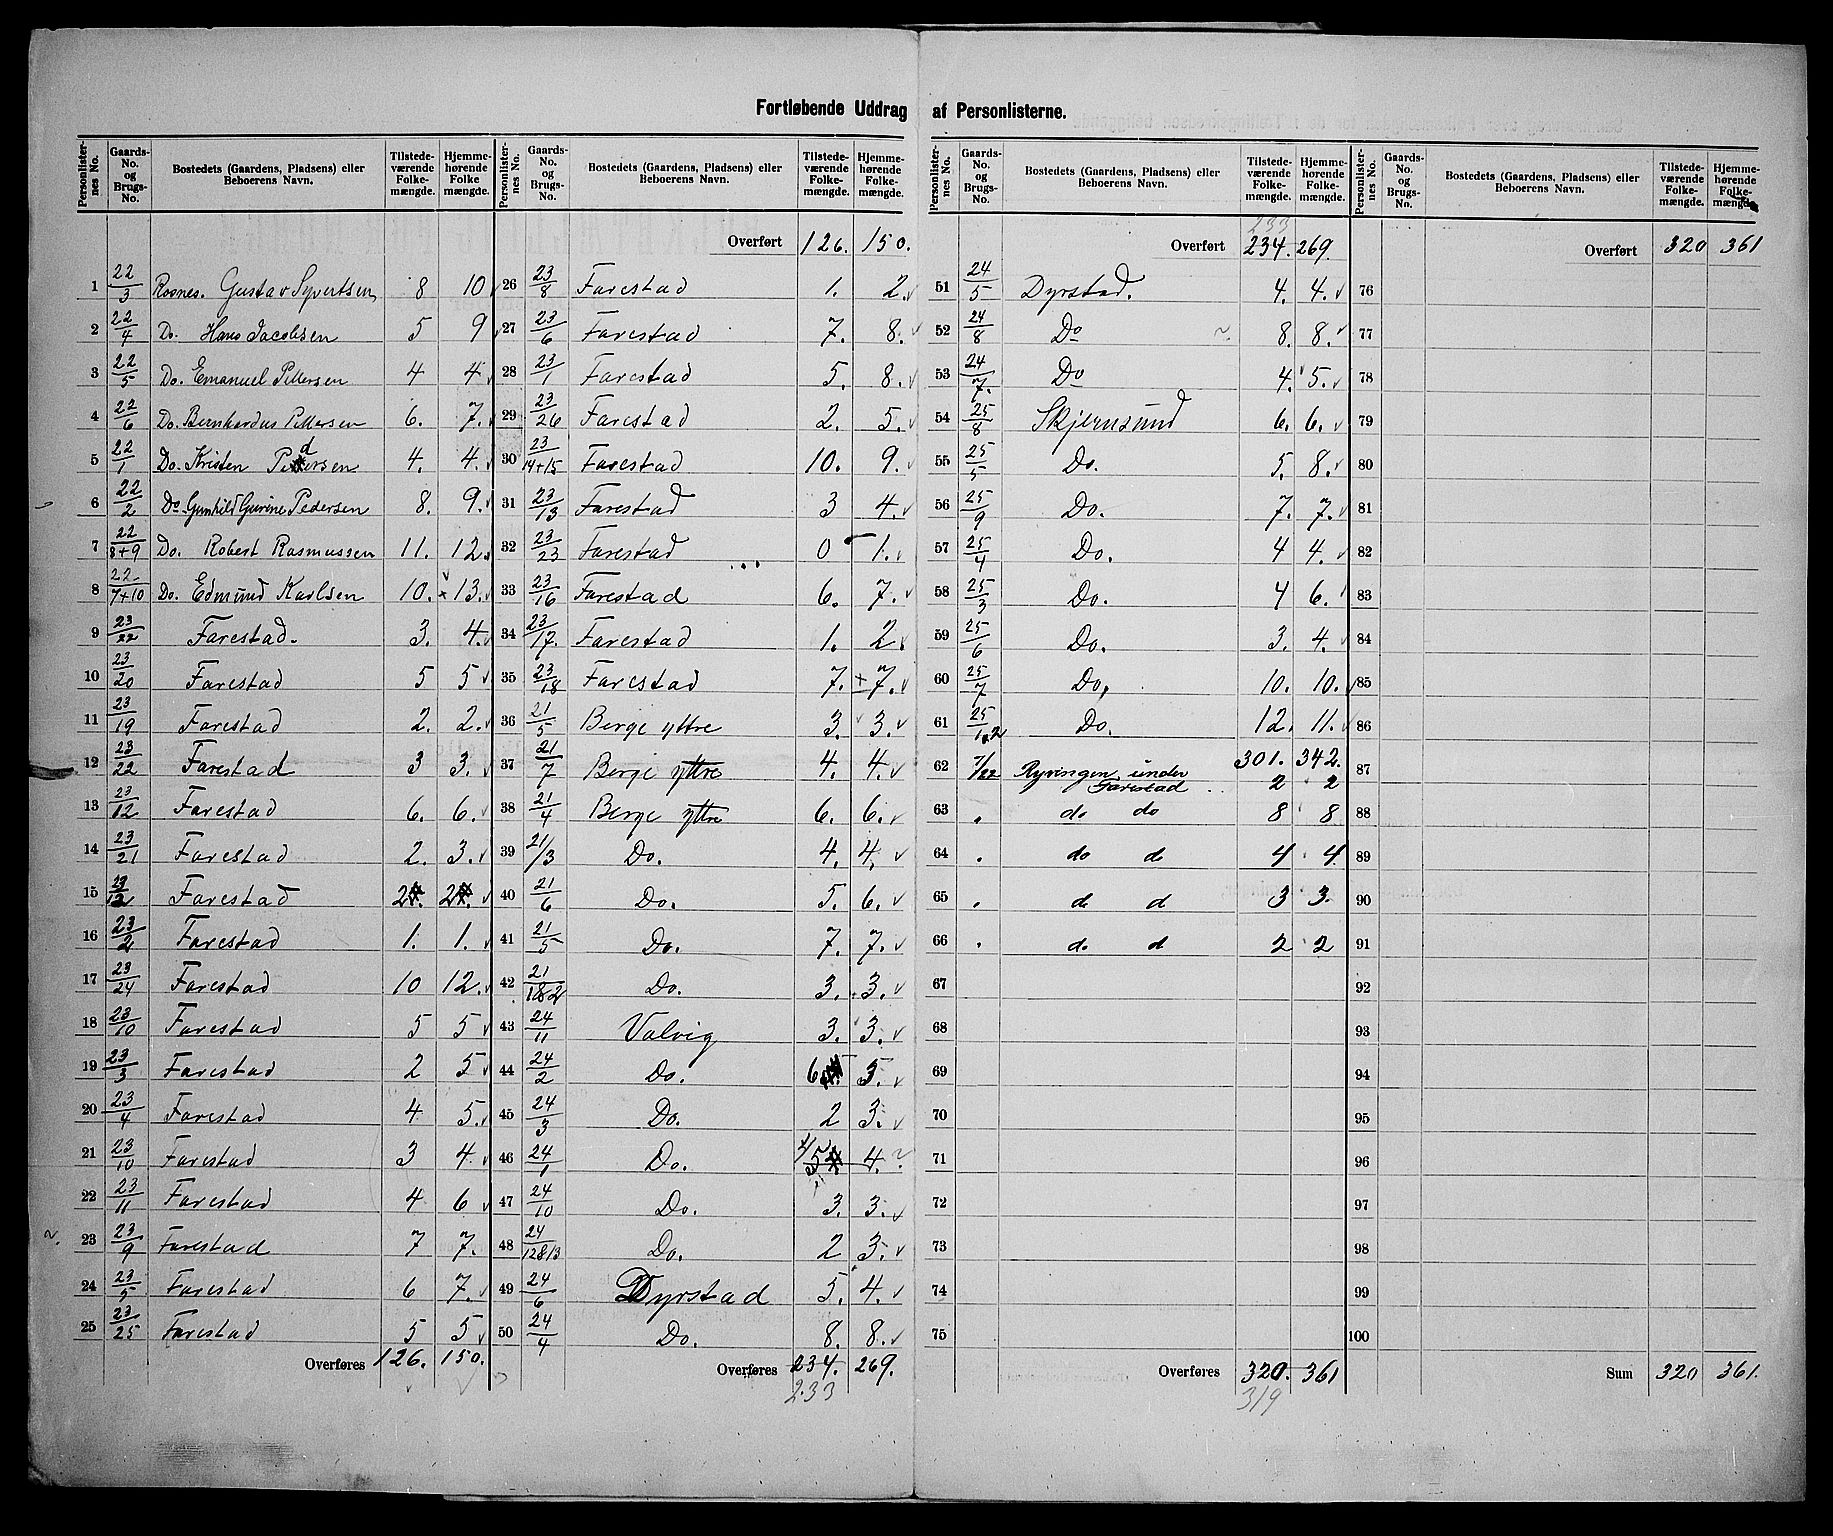 Fortløbende Uddrag af Personlisterne.
Personlister-nes No. | Gaards-No. og Brugs-No. | Bostedets (Gaardens, Pladsens) eller Beboerens Navn. | Tilstede-værende Folke-mængde. | Hjemme-hørende Folke mængde.
1 22/3 Rosnes. Gustav Syvertsen 8 10
2 22/4 Do. Hans Jacobsen 5 9
3 22/5 Do. Emanuel Pettersen 4 4
4 22/6 Do. Bernhardus Pettersen 6. 7.
5 22/1 Do. Kristen Pedersen 4. 4.
6 22/2 Do. Gunhild Gurine Pedersen 8. 9.
7 22/8+9 Do. Robert Rasmussen 11. 12.
8 22/7+10 Do. Edmund Karlsen 10. 13.
9 23/22 Farestad. 3. 4.
10 23/20 Farestad 5 5
11 23/19 Farestad 2. 2.
12 23/22 Farestad 3 3.
13 23/12 Farestad 6. 6.
14 23/21 Farestad 2. 3.
15 23/12 Farestad 2 2
16 23/2 Farestad 1. 1.
17 23/24 Farestad 10 12.
18 23/10 Farestad 5 5
19 23/3 Farestad 2 5
20 23/4 Farestad 4 5.
21 23/10 Farestad 3 4.
22 23/11 Farestad 4 6
23 23/9 Farestad 7 7.
24 23/5 Farestad 6 7.
25 23/25 Farestad 5 5
Overføres 126. 150.
Personlister-nes No. | Gaards-No. og Brugs-No. | Bostedets (Gaardens, Pladsens) eller Beboerens Navn. | Tilstede-værende Folke-mængde. | Hjemme-hørende Folke-mængde.
Overført 126. 150.
26 23/8 Farestad 1. 2.
27 23/6 Farestad 7. 8.
28 23/1 Farestad 5. 8.
29 23/26 Farestad 2. 5.
30 23/14+15 Farestad 10. 9.
31 23/13 Farestad 3 4.
32 23/23 Farestad 0 1.
33 23/16 Farestad 6. 7.
34 23/17. Farestad 1. 2.
35 23/18 Farestad 7. 7.
36 21/5 Berge yttre 3. 3.
37 21/7 Berge yttre 4. 4.
38 21/4 Berge yttre 6. 6.
39 21/3 Do. 4. 4.
40 21/6 Do. 5. 6.
41 21/5 Do. 7. 7.
42 21/1&2 Do. 3. 3.
43 24/11 Valvig 3. 3.
44 24/2 Do. 6 5.
45 24/3 Do. 2 3.
46 24/1 Do. 5 4.
47 24/10 Do. 3. 3.
48 24/12&13 Do. 2 3.
49 24/6 Dyrstad 5. 4.
50 24/4 Do. 8. 8.
Overføres 234. 269.
233
Personlister-nes No. | Gaards-No. og Brugs-No. | Bostedets (Gaardens, Pladsens) eller Beboerens Navn. | Tilstede-værende Folke-mængde. | Hjemme-hørende Folke-mængde.
233
Overført 234. 269
51 24/5 Dyrstad. 4. 4.
52 24/8 Do 8. 8.
53 24/7. Do 4. 5.
54 25/8 Skjernsund 6. 6.
55 25/5 Do. 5. 8.
56 25/9 Do. 7. 7.
57 25/4 Do. 4 4.
58 25/3 Do. 4 6.
59 25/6 Do. 3. 4.
60 25/7 Do. 10. 10.
61 25/1.2 Do. 12. 11.
301. 342.
62 7/22 Ryvingen under Farestad 2 2
63 do do 8 8
64 do d 4 4
65 d d 3 3.
66 d d 2 2
67
68
69
70
71
72
73
74
75
Overføres 320. 361
319
Personlister-nes No. | Gaards-No. og Brugs-No. | Bostedets (Gaardens, Pladsens) eller Beboerens Navn. | Tilstede-værende Folke-mængde. | Hjemme-hørende Folke-mængde.
Overført 320 361
76
77
78
79
80
81
82
83
84
85
86
87
88
89
90
91
92
93
94
95
96
97
98
99
100
Sum 320 361.